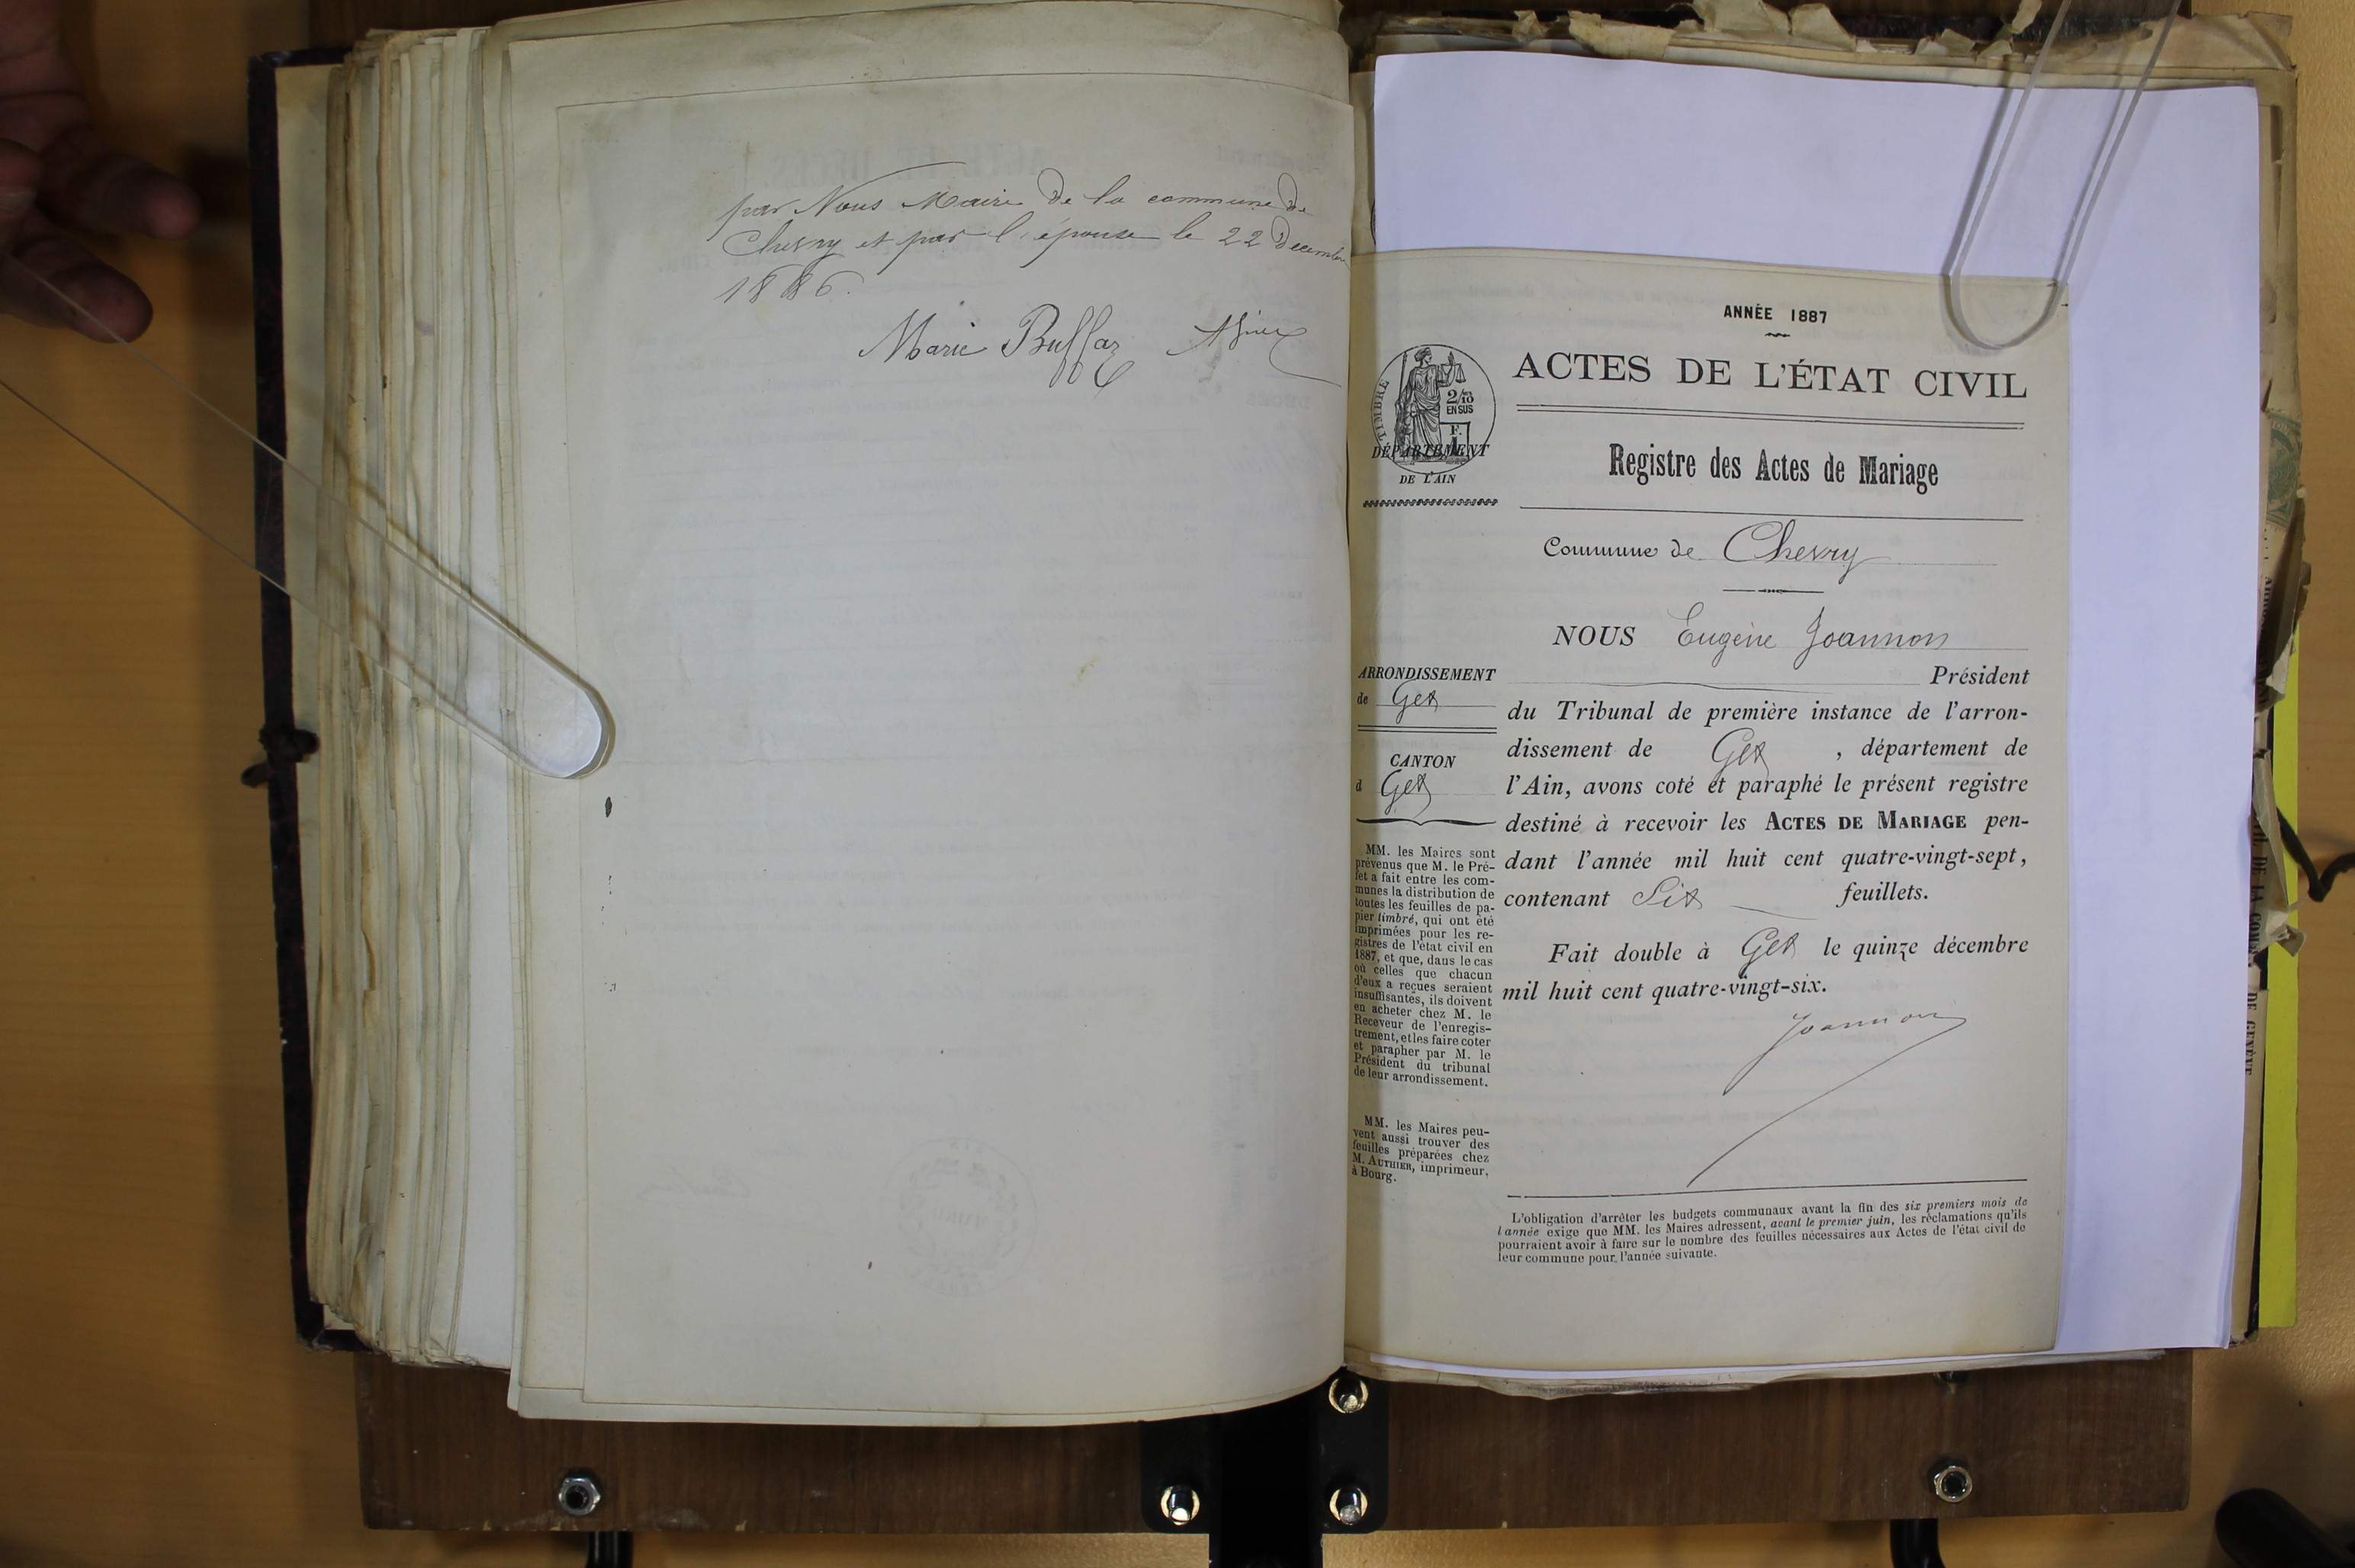 par Nous Maire de la commune de
Chevry et par l'épouse le 22 Decembre
1886.
Marie Buffaz
ANNÉE 1887
ACTES DE L'ÉTAT CIVIL
TIMBRE
2/10
EN SUS
F.
1
DÉPARTEMENT
DE L'AIN
Registre des Actes de Mariage
Commune de Chevry
NOUS Eugène Joannon
Président
du Tribunal de première instance de l'arron-
dissement de Gex, département de
l'Ain, avons coté et paraphé le présent registre
destiné à recevoir les ACTES DE MARIAGE pen-
dant l'année mil huit cent quatre-vingt-sept,
contenant Six feuillets.
Fait double à Gex le quinze décembre
mil huit cent quatre-vingt-six.
Joannon
ARRONDISSEMENT
de Gex
CANTON
d Gex
MM. les Maires sont
prévenus que M. le Pré-
fet a fait entre les com-
munes la distribution de
toutes les feuilles de pa-
pier timbré, qui ont été
imprimées pour les re-
gistres de l'état civil en
1887, et que, dans le cas
où celles que chacun
d'eux a reçues seraient
insuffisantes, ils doivent
en acheter chez M. le
Receveur de l'enregis-
trement, et les faire coter
et parapher par M. le
Président du tribunal
de leur arrondissement.
MM. les Maires peu-
vent aussi trouver des
feuilles préparées chez
M. AUTHIER, imprimeur,
à Bourg.
L'obligation d'arrêter les budgets communaux avant la fin des six premiers mois de
l'année exige que MM. les Maires adressent, avant le premier juin, les réclamations qu'ils
pourraient avoir à faire sur le nombre des feuilles nécessaires aux Actes de l'état civil de
leur commune pour l'année suivante.